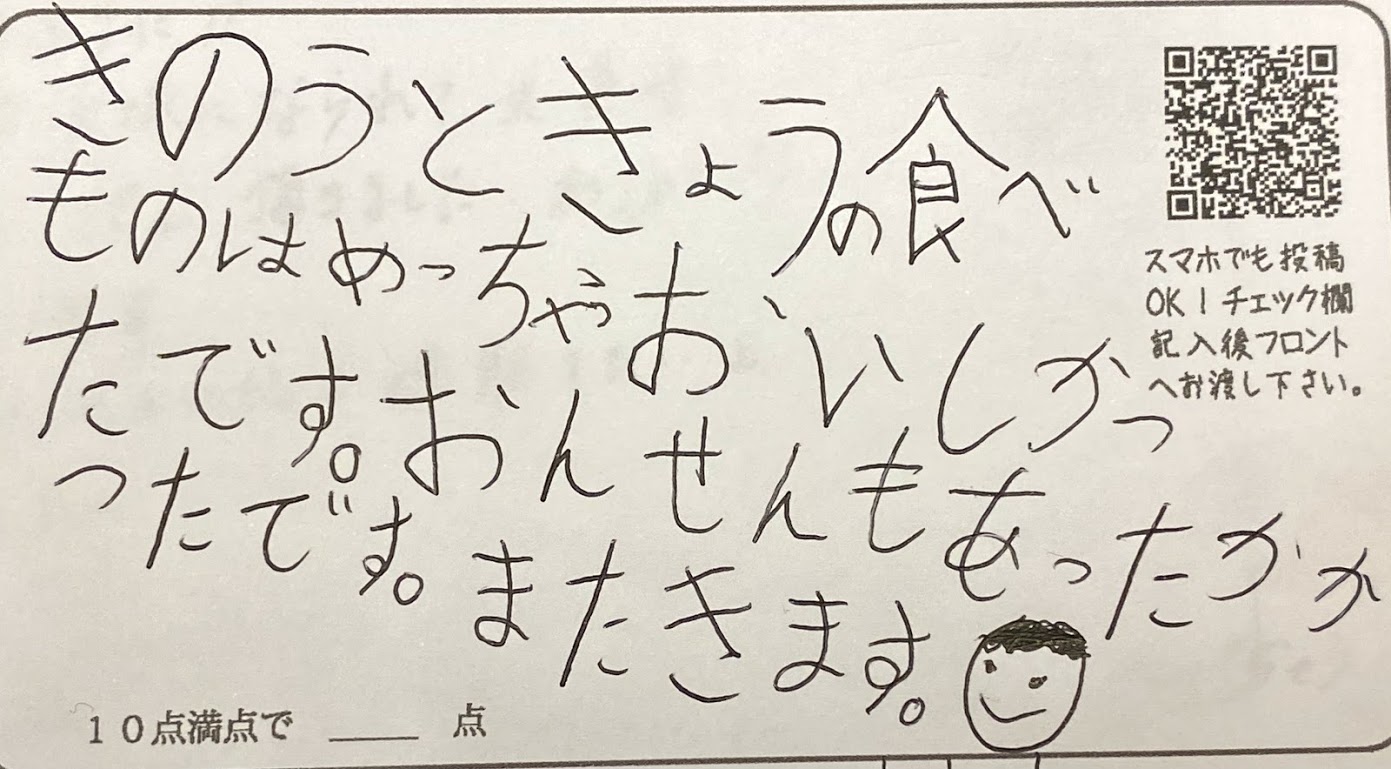 きのうときょうの食べ
ものはめっちゃおいしかっ
たです。おんせんもあったかか
ったです。またきます。
スマホでも投稿
OK！チェック欄
記入後フロント
へお渡し下さい。
10点満点で ＿＿ 点